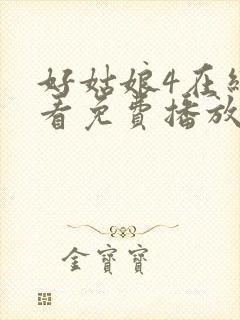 好姑娘4在
看免費播放
金寶寶